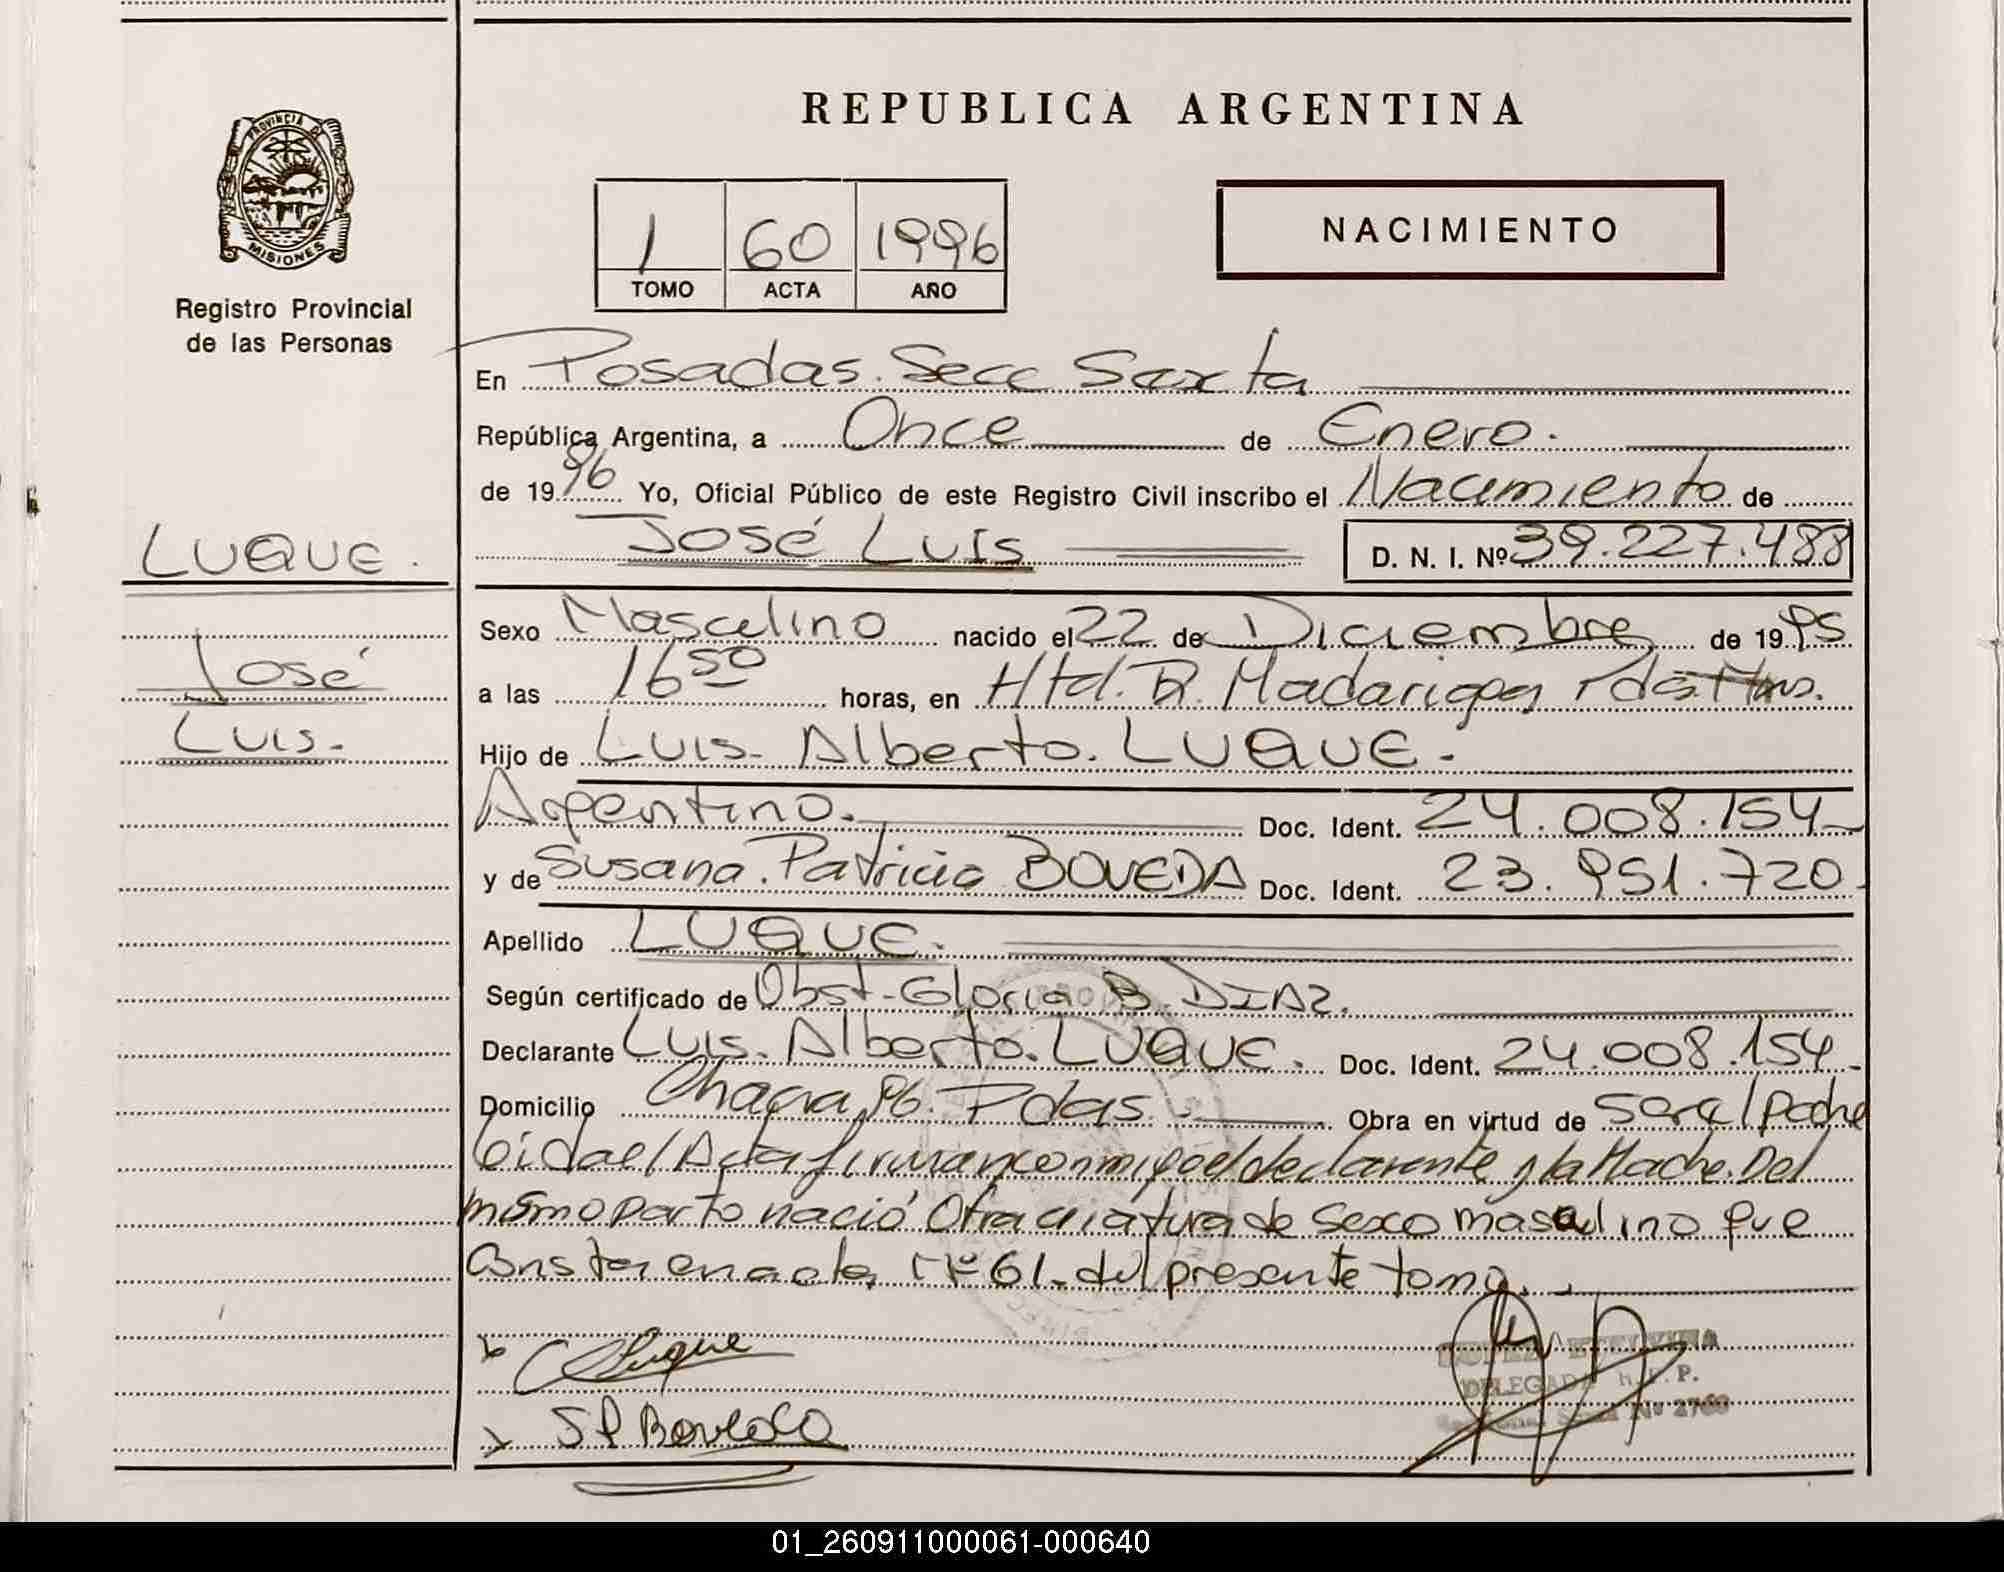 REPUBLICA ARGENTINA
PROVINCIA D
MISIONES
Registro Provincial
de las Personas
1 60 1996
TOMO ACTA AÑO
NACIMIENTO
En Posadas. Secc Sexta
República Argentina, a Once de Enero.
de 1996 Yo, Oficial Público de este Registro Civil inscribo el Nacimiento de
José Luis D. N. I. Nº 39.227.488
LUQUE.
José
Luis.
Sexo Masculino nacido el 22 de Diciembre de 1995
a las 16 50 horas, en Htal. R. Madariaga Pdas Mns.
Hijo de Luis. Alberto. LUQUE.
Argentino. Doc. Ident. 24.008.154
y de Susana. Patricia BOVEDA Doc. Ident. 23.951.720
Apellido LUQUE.
Según certificado de Obst. Gloria B. DIAZ.
Declarante Luis. Alberto. LUQUE. Doc. Ident. 24.008.154
Domicilio Chacra 96. Pdas. Obra en virtud de ser el padre
leida el Acta firman conmigo el declarante y la Madre. Del
mismo parto nació Otra criatura de sexo masculino que
Consta en acta Nº 61. del presente tomo.
Luque
S P Boveda
DELEGADA R. P. P.
Nº 2760
01_260911000061-000640